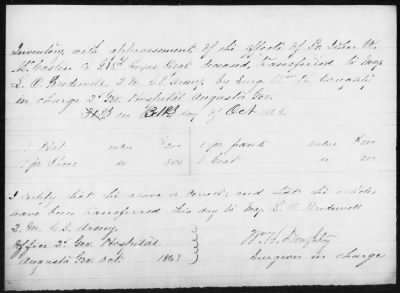 Inventory, with appraisement of the effects of
deceased, transferred to Maj
L. O. Bridewell, Q. M. C. S. Army, by Surg Wm H. Doughty
in charge 2d Gen. Hospital Augusta Geo.
on day of Oct 1863.
1 Hat value 1 pr pants value
1 pr Shoes do 1 Coat do
I certify that the above is correct, and that the articles
have been transferred this day to Maj L. O. Bridewell
Q. M. C. S. Army.
Office 2d Gen. Hospital
Augusta Geo. Oct. 1863
Wm. H. Doughty
Surgeon in charge